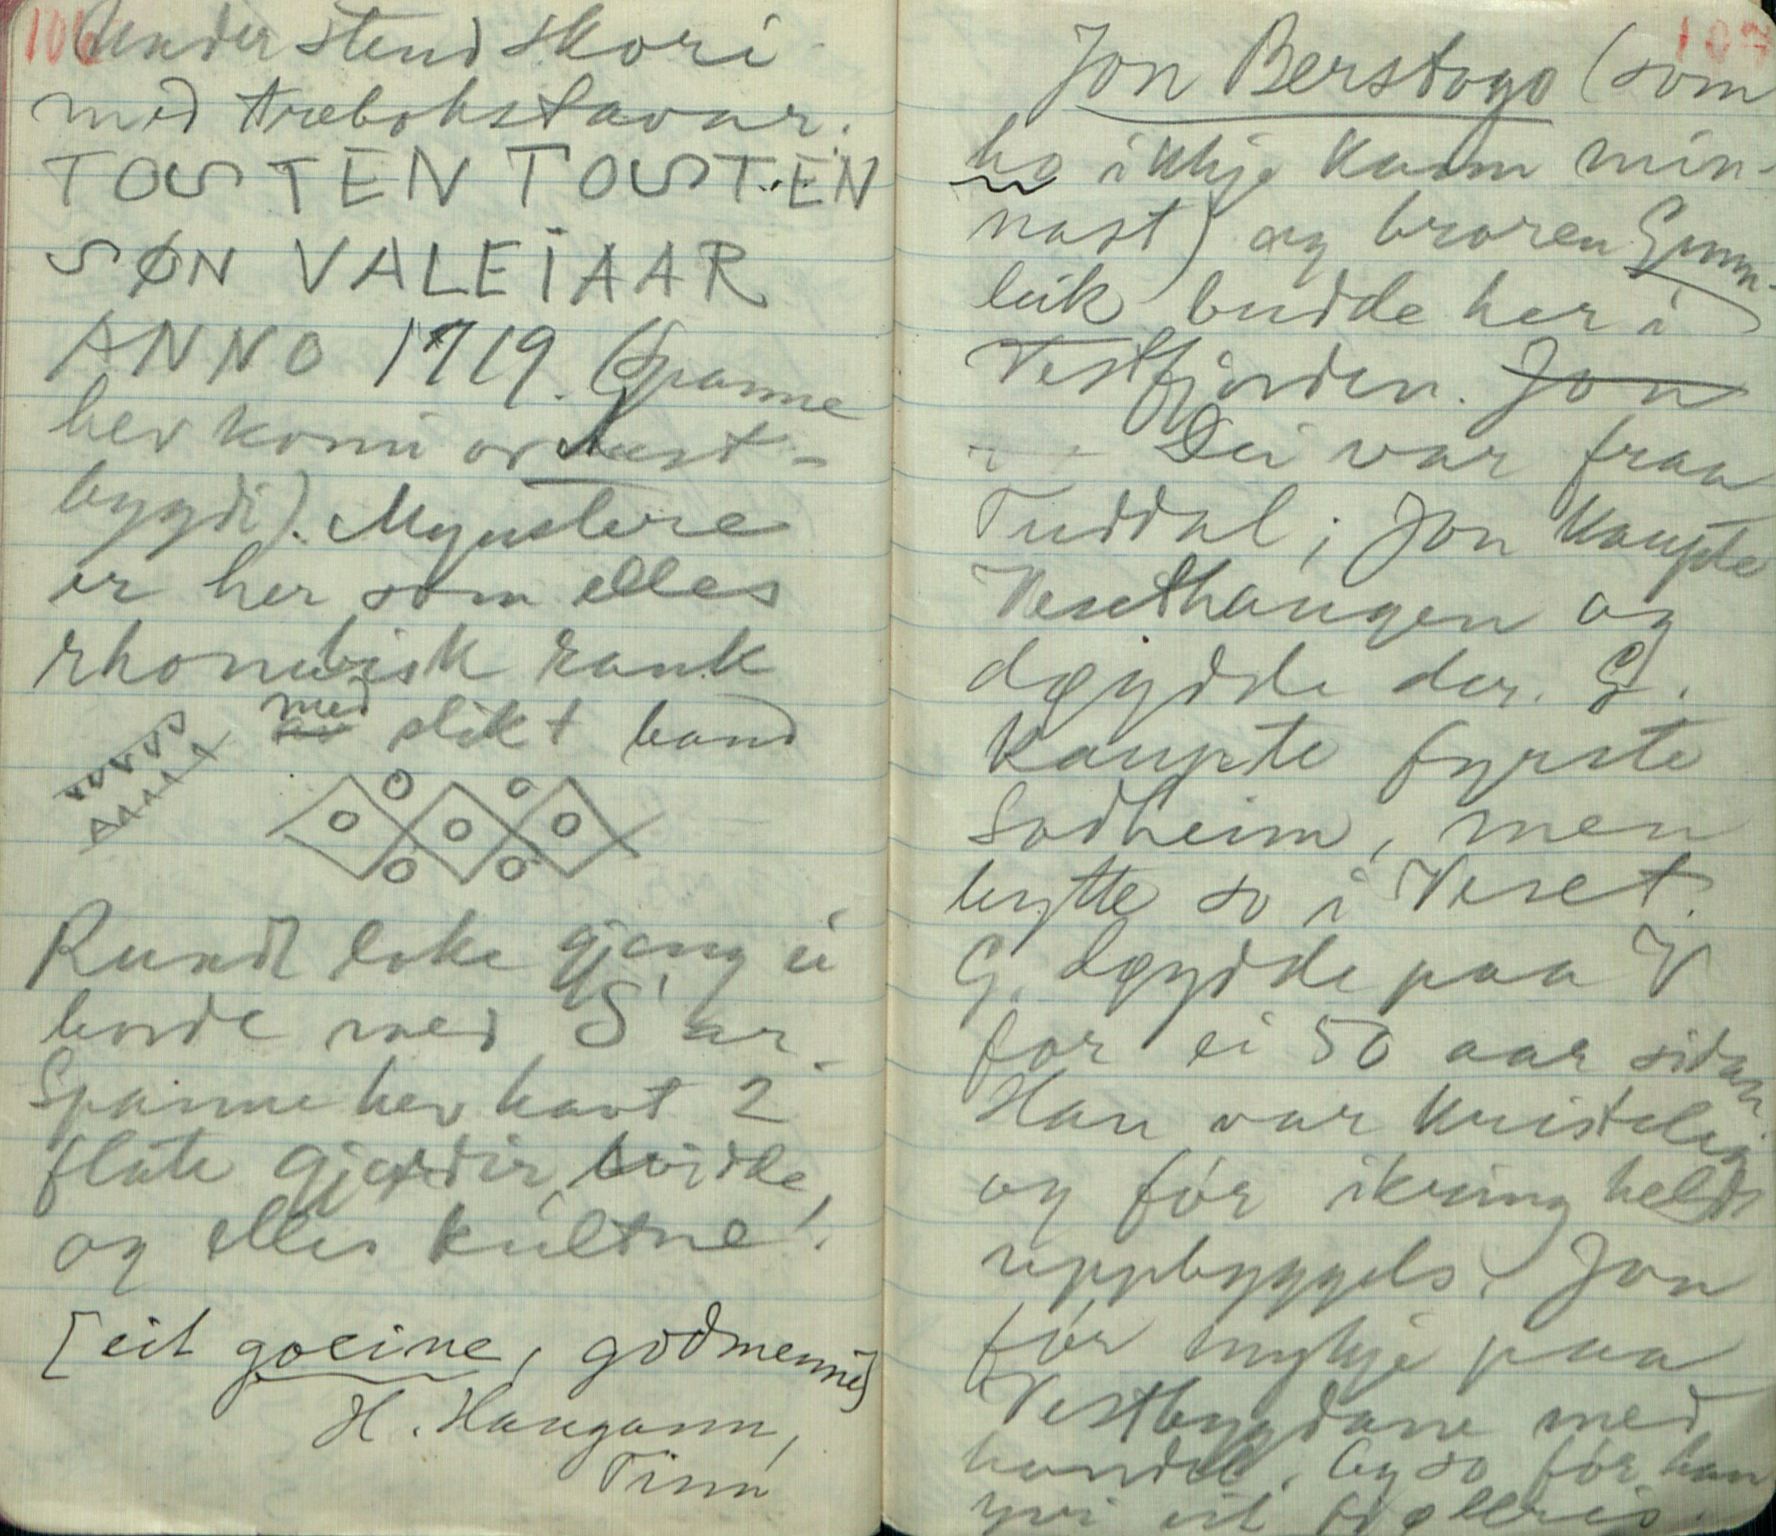 106
Under stend skori
med trebokstavar.
TOSTEN TOSTEN
SØN VALEIAAR
ANNO 1719. (Spanne
hev komi or Aust-
bygdi). Mynstere
er her som elles
rhombisk rank
med
av slikt band
Rundt loke gjeng ei
bord med S ar.
Spanne hev havt 2
flate gjordir, vide,
og elles kiltne!
[eit goeine, godmenne]
H. Haugann,
Tinn
107
Jon Berstogo (som
ho ikkje kann min-
nast) og broren Gunn-
leik budde her i
Vestfjorden. Jon
Dei var fraa
Tuddal; Jon kaupte
Vesethaugen og
døydde der. G.
kaupte fyrste
Sodheim, men
bytte so i Veset.
G. døydde paa V
for ei 50 aar sidan
Han var kristeleg
og fór ikring heldt
uppbyggels. Jon
fór mykje paa
Vestbygdane med
handel. Og so fór han
yvi eit